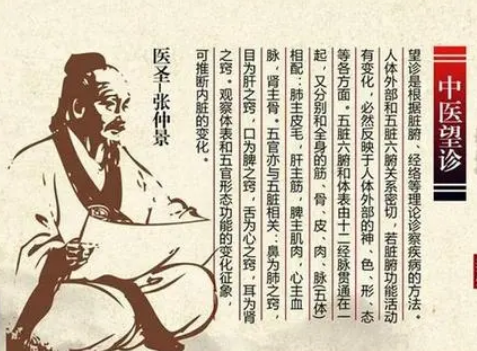 中医望诊
望诊是根据脏腑、经络等理论诊察疾病的方法。
人体外部和五脏六腑关系密切，若脏腑功能活动
有变化，必然反映于人体外部的神、色、形、态
等各方面。五脏六腑和体表由十二经脉贯通在一
起，又分别和全身的筋、骨、皮、肉、脉(五体)
相配：肺主皮毛，肝主筋，脾主肌肉，心主血
脉，肾主骨。五官亦与五脏相关：鼻为肺之窍，
目为肝之窍，口为脾之窍，舌为心之窍，耳为肾
之窍。观察体表和五官形态功能的变化征象，
可推断内脏的变化。
医圣—张仲景